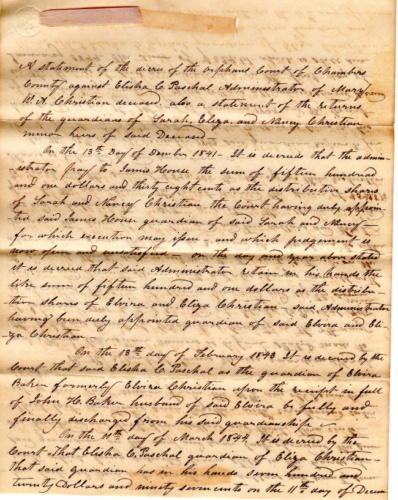 A statement of the decree of the Orphans Court of Chambers
County against Elisha C Paschal Administrator of Mary
W. A. Christian deceased, also a statement of the returns
of the guardians of Sarah, Eliza, and Nancy Christian
minor heirs of said Deceased
On the 13th Day of 1841 It is decreed that the admin-
istrator pay to James House the sum of fifteen hundred
and one dollars and thirty eight cents as the distributive shares
of Sarah and Nancy Christian, the Court having duly appoin-
ted said James House guardian of said Sarah and Nancy
for which execution may issue and which judgement is
now open and unsatisfied - on the day and year above stated
it is decreed that said Administrator retain in his hands the
like sum of fifteen hundred and one dollars as the distribu-
tion shares of Elvira and Eliza Christian said Administrator
having been duly appointed guardian of said Elvira and Eli-
za Christian
On the 13th day of February 1843 It is decreed by the
Court that said Elisha C. Paschal as the guardian of Elvira
Baker formerly Elvira Christian upon the receipt in full
of John H. Baker husband of said Elvira be fully and
finally discharged from his said guardianship
On the 11th day of March 1844 It is decreed by the
Court that Elisha C, Paschal guardian of Eliza Christian
that said guardian has in his hands seven hundred and
twenty Dollars and ninety seven cents on the 1st day of Decem